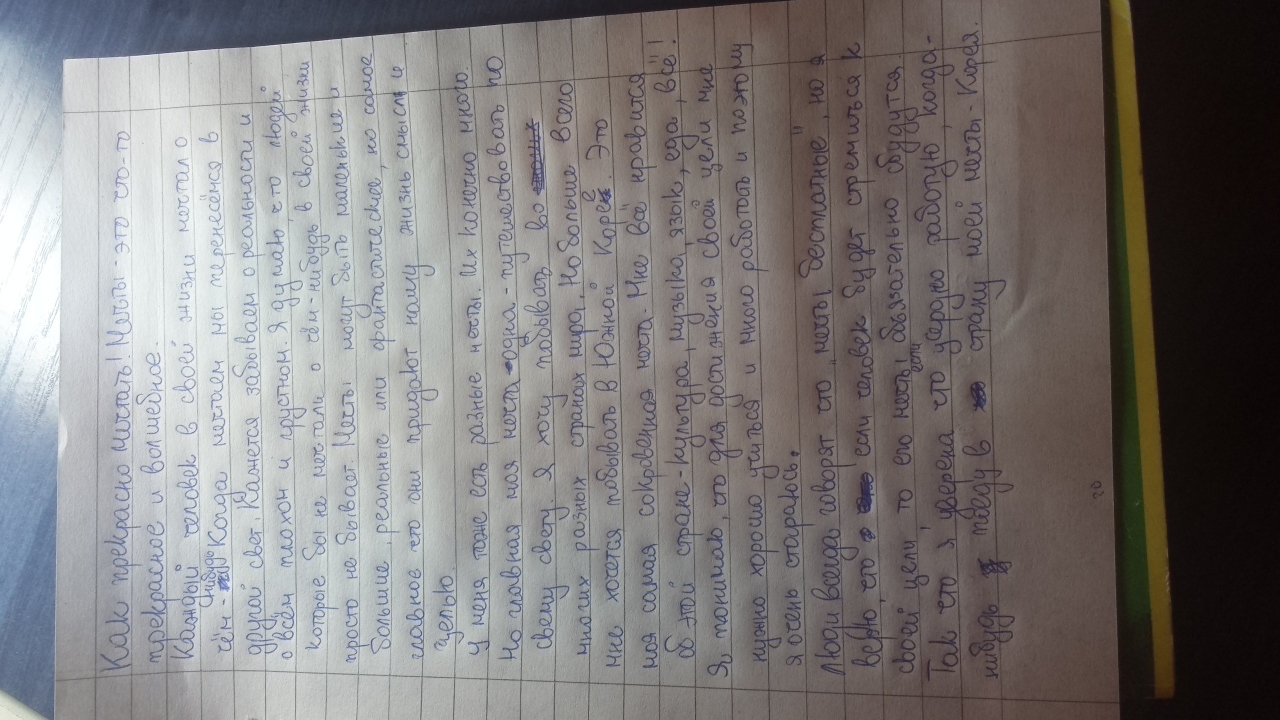 Как прекрасно мечтать! Мечты - это что-то
прекрасное и волшебное.
Каждый человек в своей жизни мечтал о
чём-нибудь Когда мечтаем мы перенесёмся в
другой свет. Кажется забываем о реальности и
о всём плохом и грустном. Я думаю что людей
которые бы не мечтали о чём-нибудь в своей жизни
просто не бывает. Мечты могут быть маленькие и
большие, реальные или фантастические, но самое
главное что они придают нашу жизнь смысл и
целью.
У меня тоже есть разные мечты. Их конечно много.
Но главная моя мечта одна - путешествовать по
свему свету. Я хочу побывать во
многих разных странах мира. Но больше всего
мне хочется побывать в Южной Корее. Это
моя самая сокровенная мечта. Мне всё нравится
об этой стране - культура, музыка, язык, еда, всё!
Я, понимаю, что для достижения своей цели мне
нужно хорошо учиться и много работать и поэтому
я очень стараюсь.
Люди всегда говорят что „мечты бесплатные", но я
верю, что если человек будет стремиться к
своей цели то его мечты обязательно сбудутся.
Так что я уверена что если усердно работую, когда-
нибудь поеду в страну моей мечты - Корея.
20